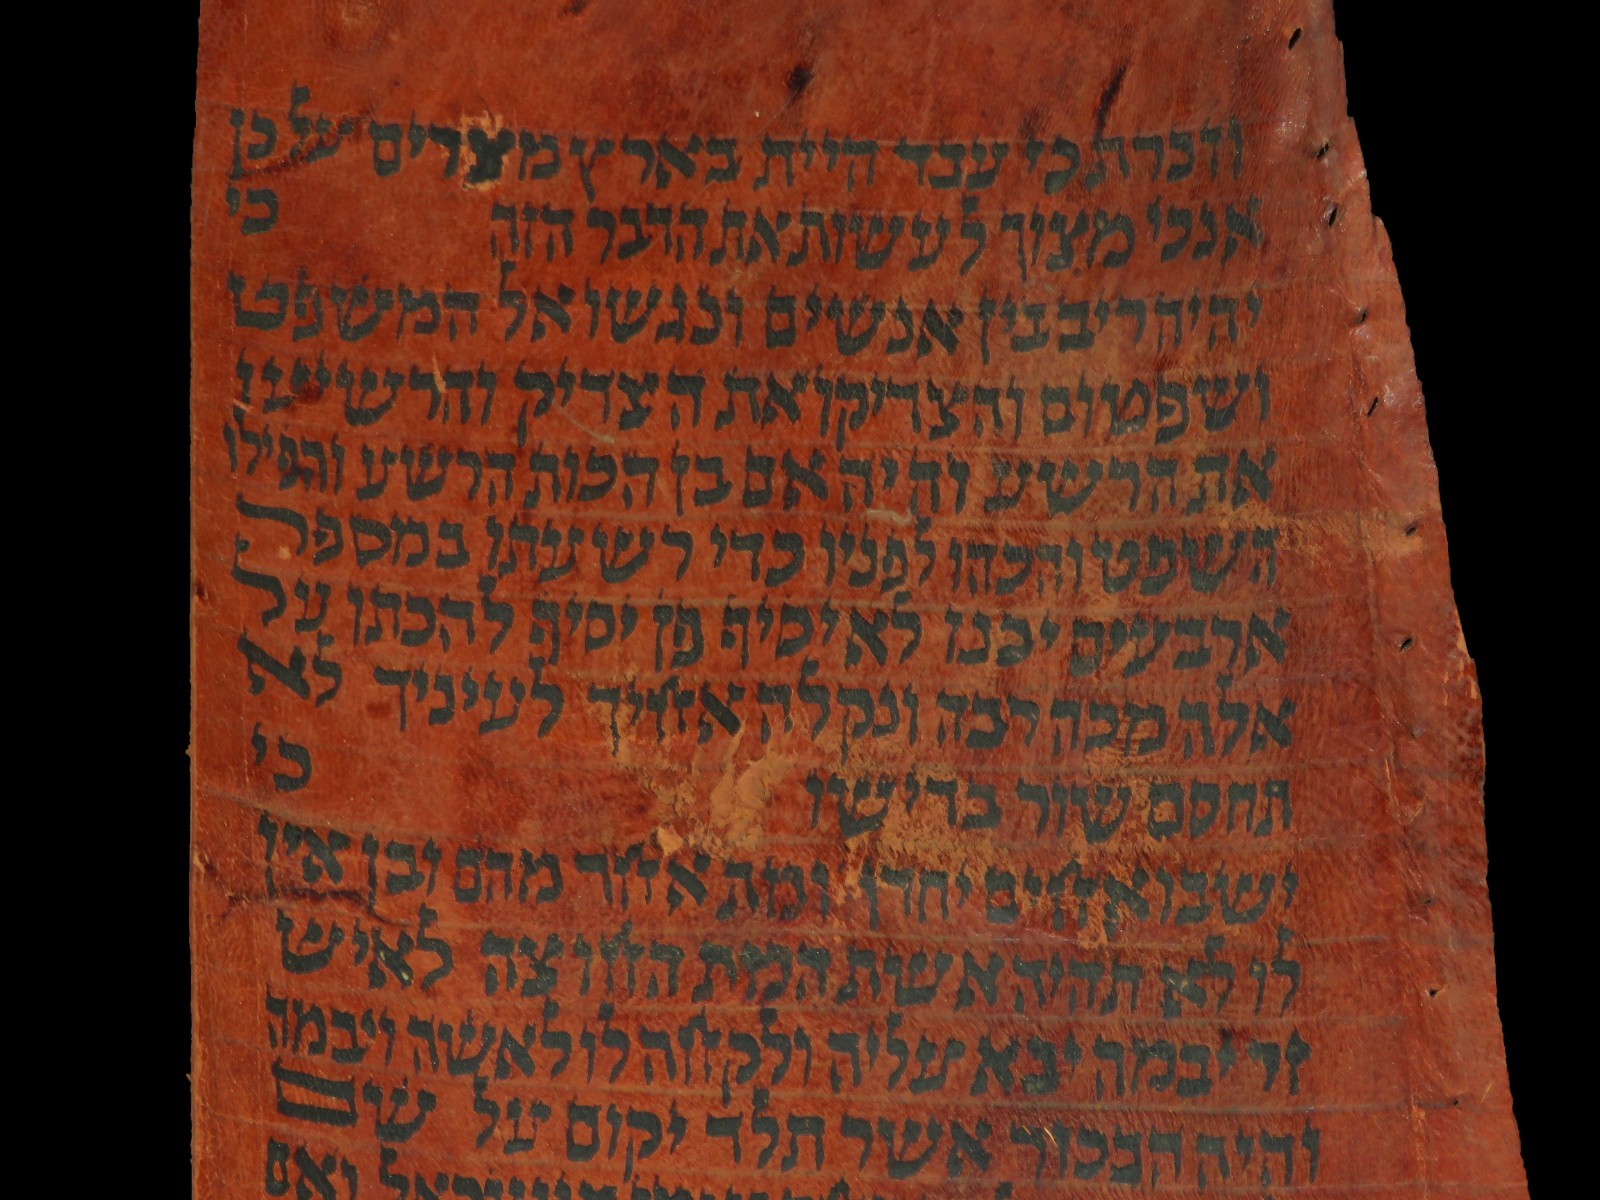 וזכרת כי עבד היית בארץ מצרים על כן
אנכי מצוך לעשות את הדבר הזה כי
יהיה ריב בין אנשים ונגשו אל המשפט
ושפטום והצדיקו את הצדיק והרשיעו
את הרשע והיה אם בן הכות הרשע והפילו
השפט והכהו לפניו כדי רשעתו במספר
ארבעים יכנו לא יסיף פן יסיף להכתו על
אלה מכה רבה ונקלה אחיך לעיניך לא
תחסם שור בדישו כי
ישבו אחים יחדו ומת אחד מהם ובן אין
לו לא תהיה אשת המת החוצה לאיש
זר יבמה יבא עליה ולקחה לו לאשה ויבמה
והיה הבכור אשר תלד יקום על שם
ואם